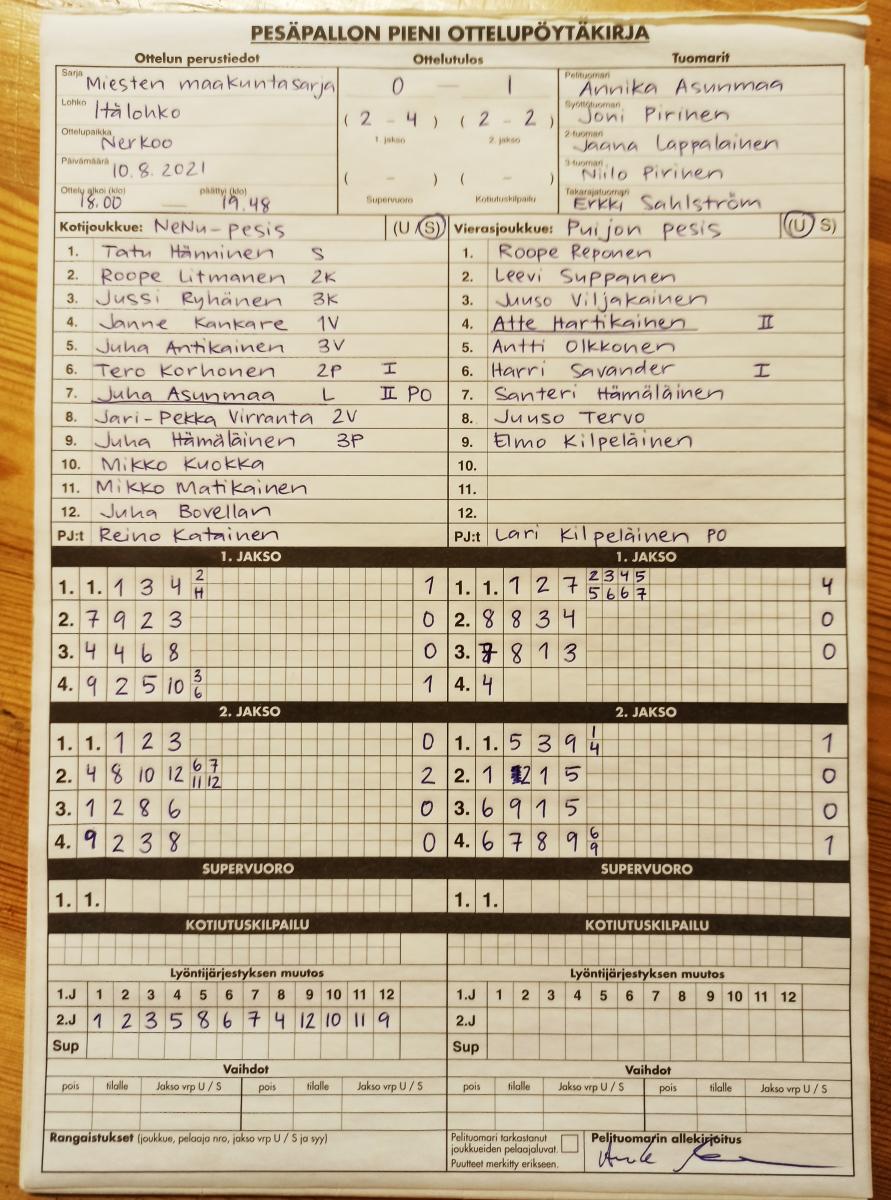 PESÄPALLON PIENI OTTELUPÖYTÄKIRJA
Ottelun perustiedot Ottelutulos Tuomarit
Sarja Miesten maakuntasarja 0 — 1 Pelituomari Annika Asunmaa
Lohko Itälohko ( 2 - 4 ) ( 2 - 2 ) Syöttötuomari Joni Pirinen
Ottelupaikka Nerkoo 1. jakso 2. jakso 2-tuomari Jaana Lappalainen
Päivämäärä 10.8.2021 ( - ) ( - ) 3-tuomari Niilo Pirinen
Ottelu alkoi (klo) 18.00 — päättyi (klo) 19.48 Supervuoro Kotiutuskilpailu Takarajatuomari Erkki Sahlström
Kotijoukkue: NeNu-pesis (U S) Vierasjoukkue: Puijon pesis (U S)
1. Tatu Hänninen S 1. Roope Reponen
2. Roope Litmanen 2K 2. Leevi Suppanen
3. Jussi Ryhänen 3K 3. Juuso Viljakainen
4. Janne Kankare 1V 4. Atte Hartikainen II
5. Juha Antikainen 3V 5. Antti Olkkonen
6. Tero Korhonen 2P I 6. Harri Savander I
7. Juha Asunmaa L II PO 7. Santeri Hämäläinen
8. Jari-Pekka Virranta 2V 8. Juuso Tervo
9. Juha Hämäläinen 3P 9. Elmo Kilpeläinen
10. Mikko Kuokka 10.
11. Mikko Matikainen 11.
12. Juha Bovellan 12.
PJ:t Reino Katainen PJ:t Lari Kilpeläinen PO
1. JAKSO 1. JAKSO
1. 1. 1 3 4 2 H 1 1. 1. 1 2 7 2 3 4 5 5 6 6 7 4
2. 7 9 2 3 0 2. 8 8 3 4 0
3. 4 4 6 8 0 3. 7 8 1 3 0
4. 9 2 5 10 3 6 1 4. 4
2. JAKSO 2. JAKSO
1. 1. 1 2 3 0 1. 1. 5 3 9 1 4 1
2. 4 8 10 12 6 7 11 12 2 2. 1 2 1 5 0
3. 1 2 8 6 0 3. 6 9 1 5 0
4. 9 2 3 8 0 4. 6 7 8 9 6 9 1
SUPERVUORO SUPERVUORO
1. 1. 1. 1.
KOTIUTUSKILPAILU KOTIUTUSKILPAILU
Lyöntijärjestyksen muutos Lyöntijärjestyksen muutos
1.J 1 2 3 4 5 6 7 8 9 10 11 12 1.J 1 2 3 4 5 6 7 8 9 10 11 12
2.J 1 2 3 5 8 6 7 4 12 10 11 9 2.J
Sup Sup
Vaihdot Vaihdot
pois tilalle Jakso vrp U / S pois tilalle Jakso vrp U / S pois tilalle Jakso vrp U / S pois tilalle Jakso vrp U / S
Rangaistukset (joukkue, pelaaja nro, jakso vrp U / S ja syy) Pelituomari tarkastanut Pelituomarin allekirjoitus
joukkueiden pelaajaluvat.
Puutteet merkitty erikseen.